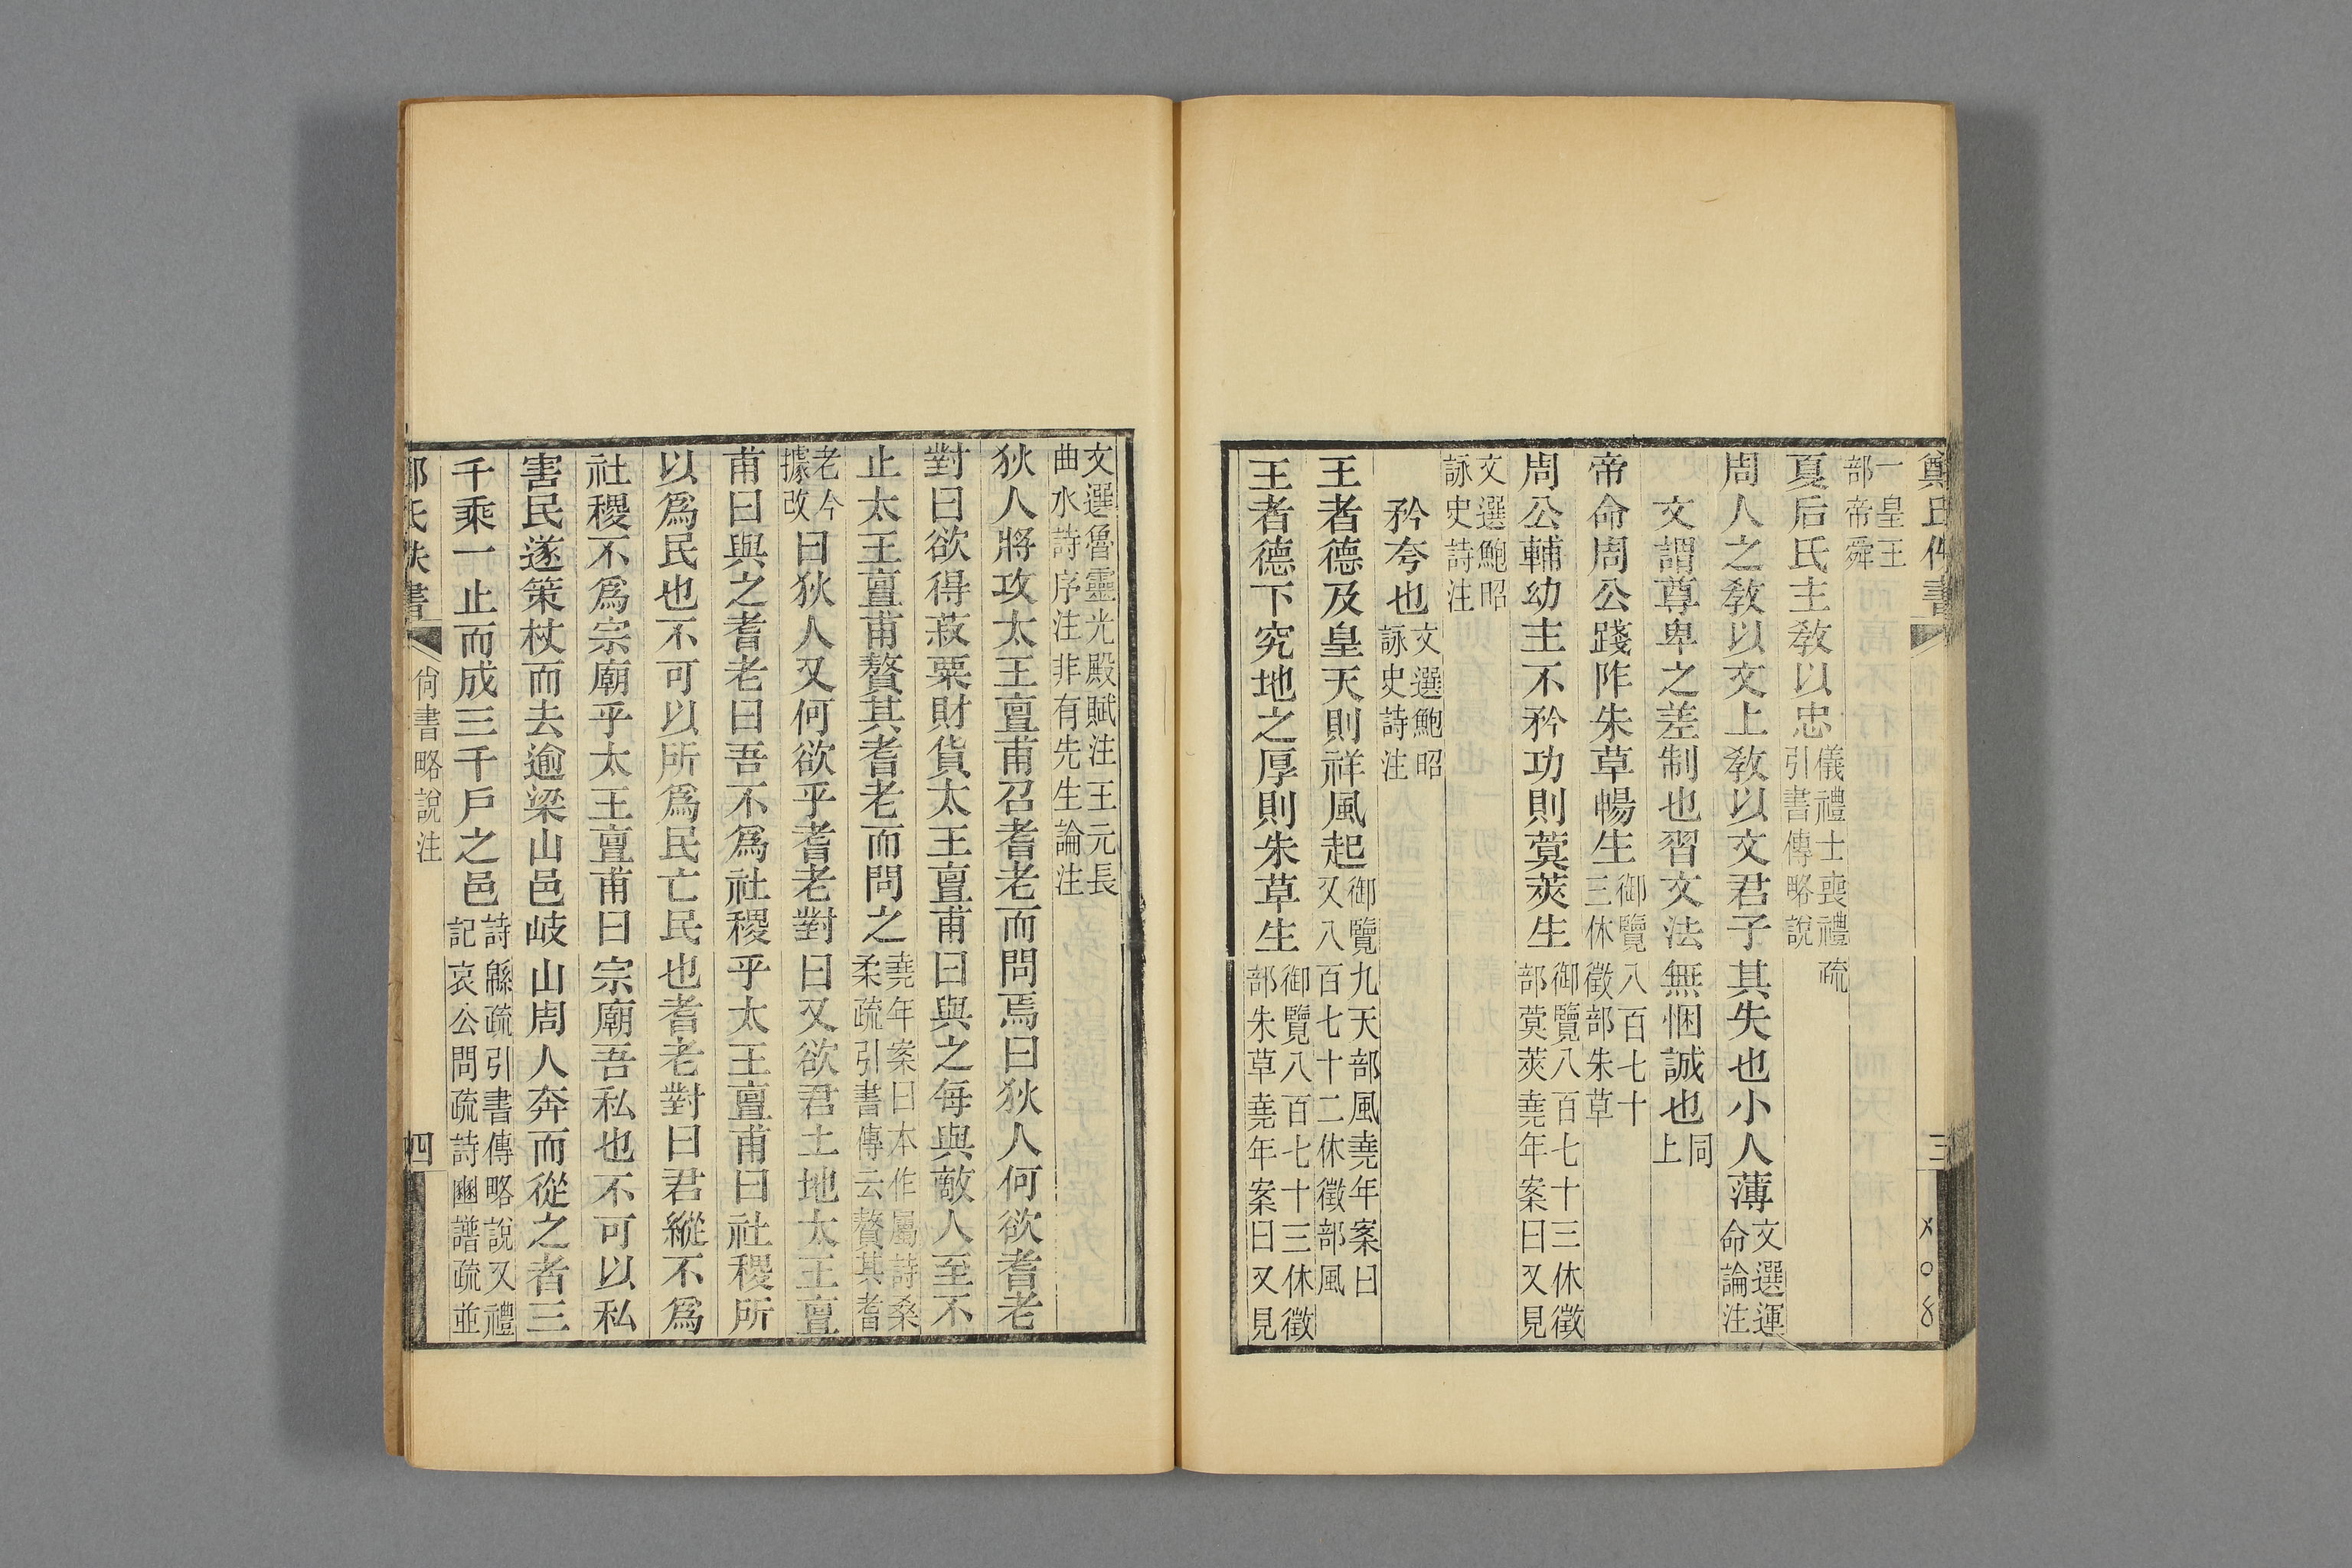 鄭氏佚書 三
一皇王
部帝舜
夏后氏主敎以忠儀禮士喪禮疏
引書傳略說
周人之敎以文上敎以文君子其失也小人薄文選運
命論注
文謂尊卑之差制也習文法無悃誠也同
上
帝命周公踐阼朱草暢生御覽八百七十
三休徵部朱草
周公輔幼主不矜功則蓂莢生御覽八百七十三休徵
部蓂莢堯年案曰又見
文選鮑昭
詠史詩注
矜夸也文選鮑昭
詠史詩注
王者德及皇天則祥風起御覽九天部風堯年案曰
又八百七十二休徵部風
王者德下究地之厚則朱草生御覽八百七十三休徵
部朱草堯年案曰又見
文選魯靈光殿賦注王元長
曲水詩序注非有先生論注
狄人將攻太王亶甫召耆老而問焉曰狄人何欲耆老
對曰欲得菽粟財貨太王亶甫曰與之每與敵人至不
止太王亶甫贅其耆老而問之堯年案曰本作屬詩桑
柔疏引書傳云贅其耆
老今
據改曰狄人又何欲乎耆老對曰又欲君土地太王亶
甫曰與之耆老曰吾不爲社稷乎太王亶甫曰社稷所
以爲民也不可以所爲民亡民也耆老對曰君縱不爲
社稷不爲宗廟乎太王亶甫曰宗廟吾私也不可以私
害民遂策杖而去逾梁山邑岐山周人奔而從之者三
千乘一止而成三千戶之邑詩緜疏引書傳略說又禮
記哀公問疏詩豳譜疏並
鄭氏佚書 尙書略說注 四